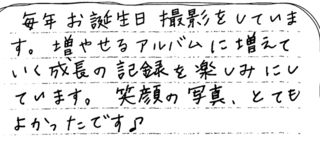 毎年お誕生日撮影をしていま
す。増やせるアルバムに増えて
いく成長の記録を楽しみにし
ています。笑顔の写真、とても
よかったです♪